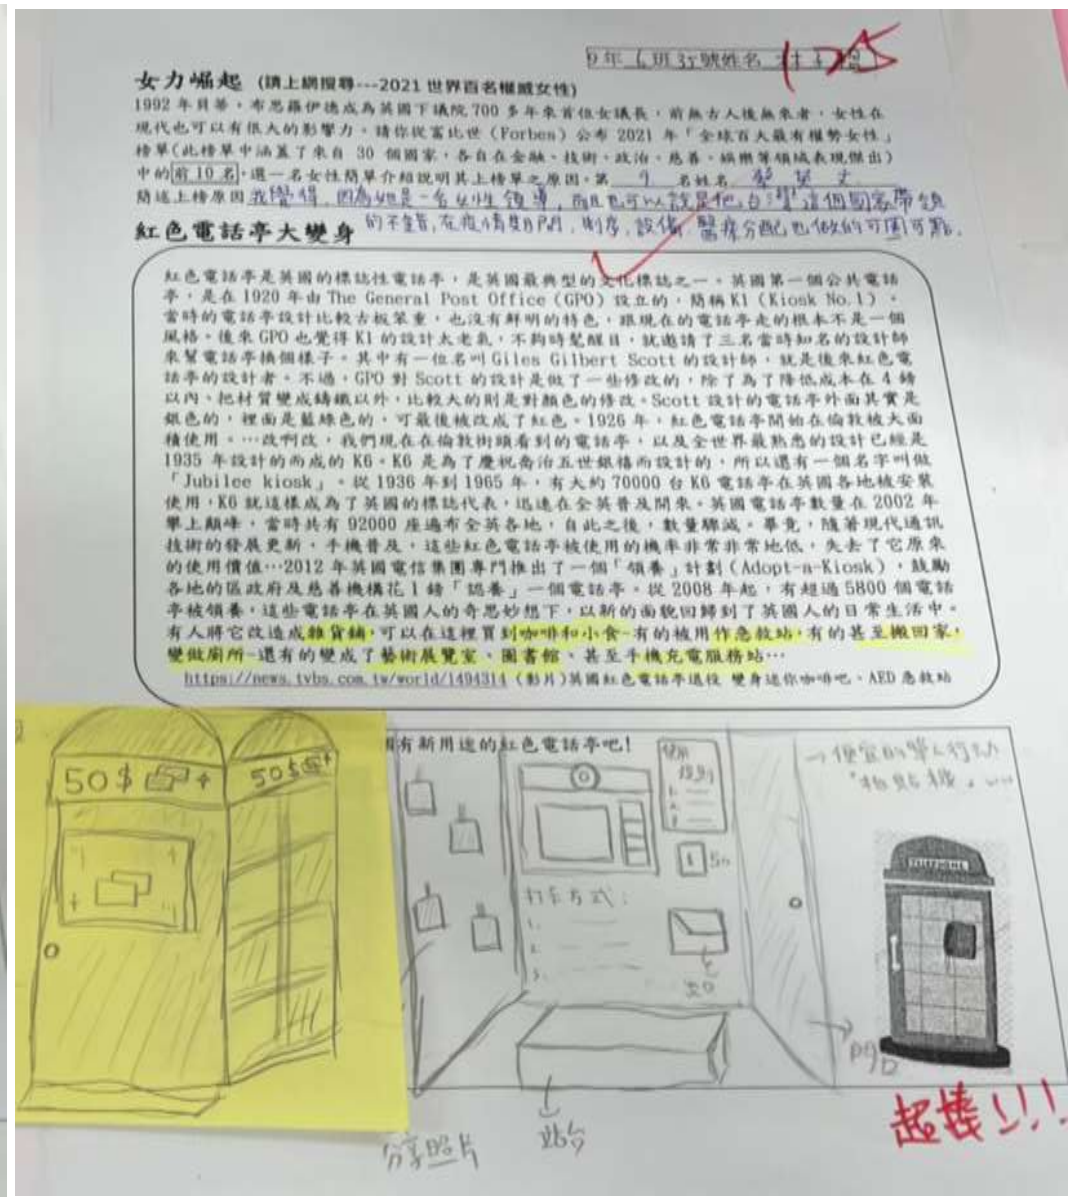 9年6班35號姓名
125
女力崛起 (請上網搜尋---2021世界百名權威女性)
1992年貝蒂·布思羅伊德成為英國下議院700多年來首位女議長,前無古人後無來者,女性在
現代也可以有很大的影響力,請你從富比世(Forbes)公布2021年「全球百大最有權勢女性」
榜單(此榜單中涵蓋了來自 30 個國家,各自在金融、技術、政治、慈善、娛樂等領域表現傑出)
中的前10名,選一名女性簡單介紹說明其上榜單之原因。第 9 名姓名 蔡英文
簡述上榜原因 我覺得,因為她是一名女性領導,而且也可以說是他把台灣這個國家帶領
的不錯,在疫情期間,制度,設備,醫療分配也做的可圈可點.
紅色電話亭大變身
紅色電話亭是英國的標誌性電話亭,是英國最典型的文化標誌之一。英國第一個公共電話
亭,是在1920年由The General Post Office(GPO)設立的,簡稱K1(Kiosk No.1)。
當時的電話亭設計比較古板笨重,也沒有鮮明的特色,跟現在的電話亭走的根本不是一個
風格。後來GPO也覺得K1的設計太老氣,不夠時髦醒目,就邀請了三名當時知名的設計師
來幫電話亭換個樣子。其中有一位名叫Giles Gilbert Scott的設計師,就是後來紅色電
話亭的設計者。不過,GPO對Scott的設計是做了一些修改的,除了為了降低成本在4鎊
以內、把材質變成鑄鐵以外,比較大的則是對顏色的修改。Scott設計的電話亭外面其實是
銀色的,裡面是藍綠色的,可最後被改成了紅色。1926年,紅色電話亭開始在倫敦被大面
積使用。…改啊改,我們現在在倫敦街頭看到的電話亭,以及全世界最熟悉的設計已經是
1935年設計的而成的K6。K6是為了慶祝喬治五世銀禧而設計的,所以還有一個名字叫做
「Jubilee kiosk」。從1936年到1965年,有大約70000台K6電話亭在英國各地被安裝
使用,K6就這樣成為了英國的標誌代表,迅速在全英普及開來。英國電話亭數量在2002年
攀上巔峰,當時共有92000座遍布全英各地,自此之後,數量驟減。畢竟,隨著現代通訊
技術的發展更新,手機普及,這些紅色電話亭被使用的機率非常非常地低,失去了它原來
的使用價值…2012年英國電信集團專門推出了一個「領養」計劃(Adopt-a-Kiosk),鼓勵
各地的區政府及慈善機構花1鎊「認養」一個電話亭。從2008年起,有超過5800個電話
亭被領養,這些電話亭在英國人的奇思妙想下,以新的面貌回歸到了英國人的日常生活中。
有人將它改造成雜貨鋪,可以在這裡買到咖啡和小食-有的被用作急救站,有的甚至搬回家,
變做廁所-還有的變成了藝術展覽室、圖書館、甚至手機充電服務站…
https://news.tvbs.com.tw/world/1494314(影片)英國紅色電話亭退役 變身迷你咖啡吧、AED急救站
有新用途的紅色電話亭吧!
50$
50$
使用
說明
打卡方式:
1.
2.
3.
出口
→便宜的單人行動
「拍貼機」
TELEPHONE
門口
分享照片
站台
超棒!!!